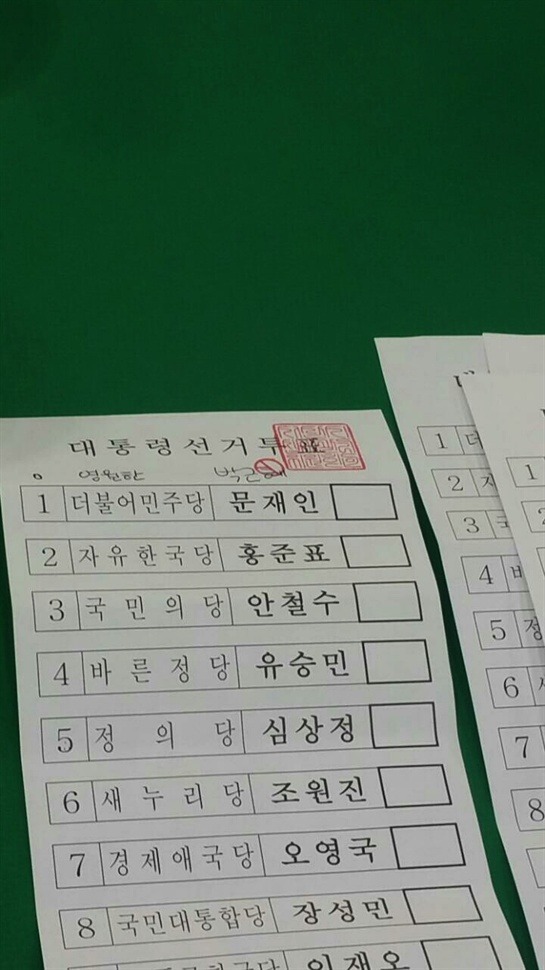 대통령선거투표
0 영원한 박근혜
1 더불어민주당 문재인
2 자유한국당 홍준표
3 국민의당 안철수
4 바른정당 유승민
5 정의당 심상정
6 새누리당 조원진
7 경제애국당 오영국
8 국민대통합당 장성민
이재오
1
2
3
4
5
6
7
8
1